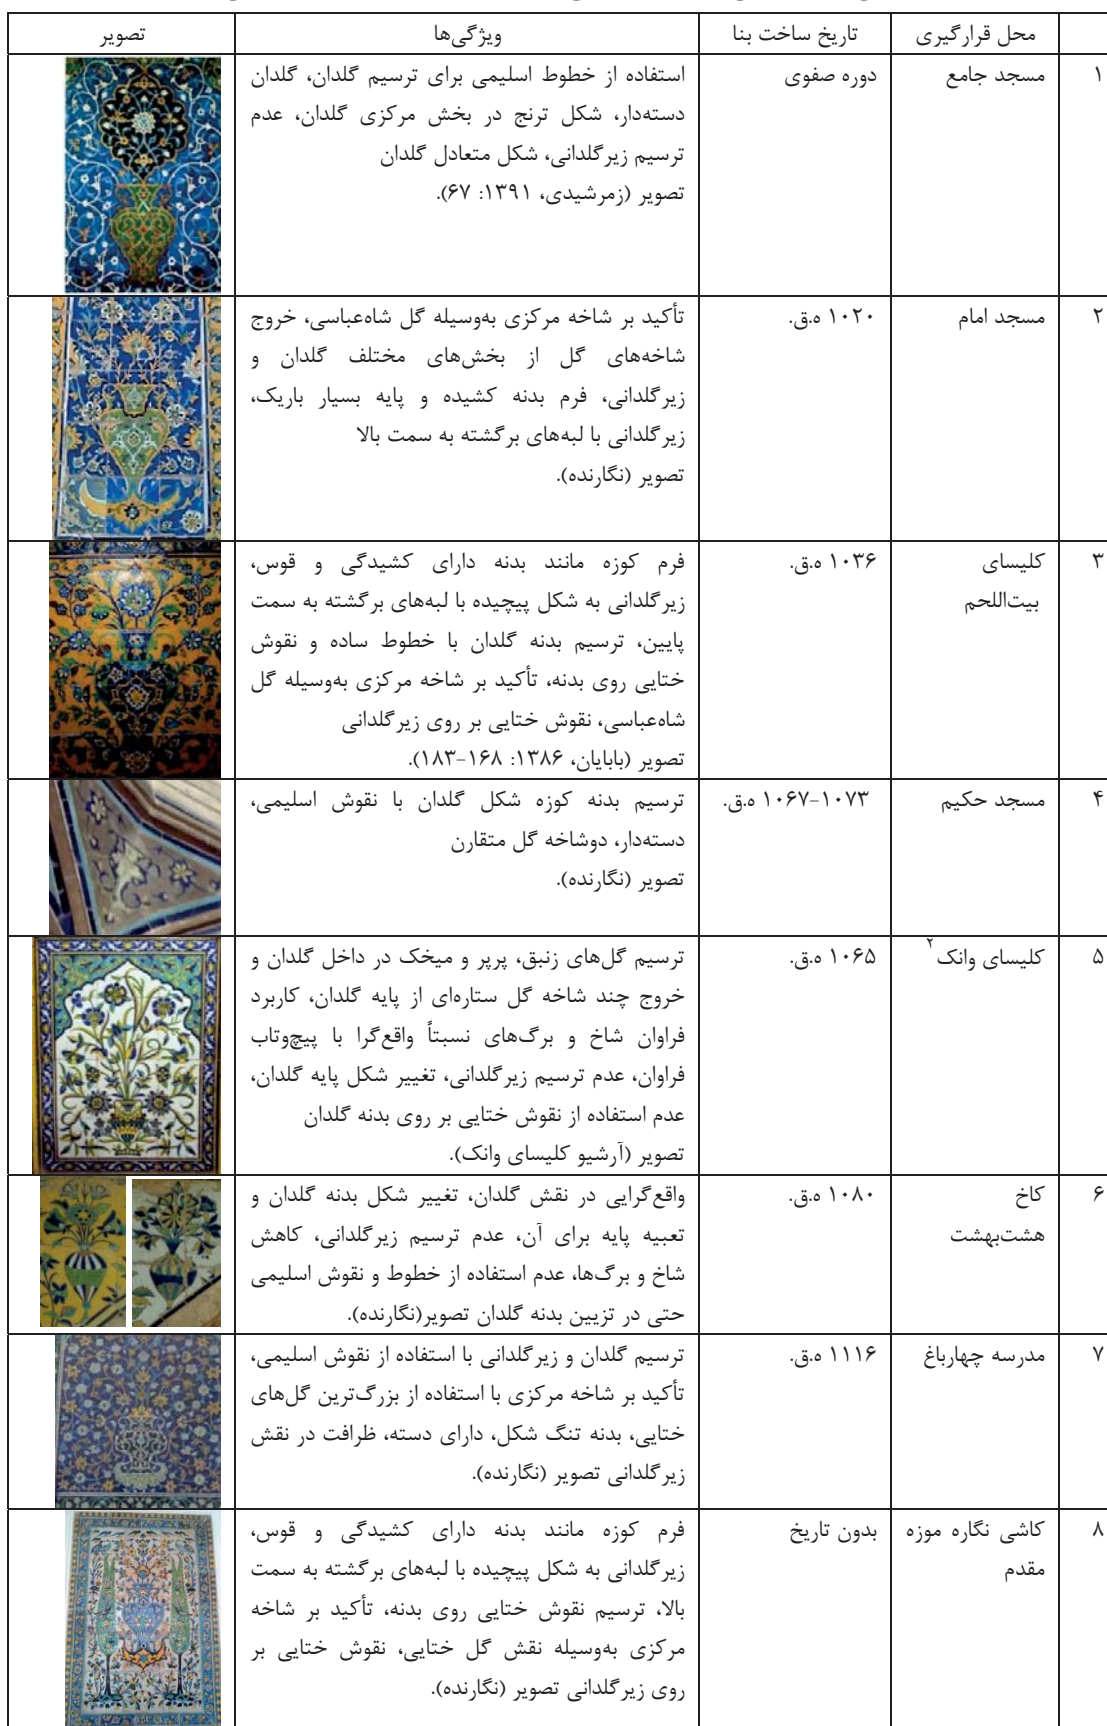 محل قرارگیری	تاریخ ساخت بنا	ویژگی‌ها	تصویر
۱	مسجد جامع	دوره صفوی	استفاده از خطوط اسلیمی برای ترسیم گلدان، گلدان
دسته‌دار، شکل ترنج در بخش مرکزی گلدان، عدم
ترسیم زیرگلدانی، شکل متعادل گلدان
تصویر (زمرشیدی، ۱۳۹۱: ۶۷).
۲	مسجد امام	۱۰۲۰ ه.ق.	تأکید بر شاخه مرکزی به‌وسیله گل شاه‌عباسی، خروج
شاخه‌های گل از بخش‌های مختلف گلدان و
زیرگلدانی، فرم بدنه کشیده و پایه بسیار باریک،
زیرگلدانی با لبه‌های برگشته به سمت بالا
تصویر (نگارنده).
۳	کلیسای	۱۰۳۶ ه.ق.	فرم کوزه مانند بدنه دارای کشیدگی و قوس،
بیت‌اللحم	زیرگلدانی به شکل پیچیده با لبه‌های برگشته به سمت
پایین، ترسیم بدنه گلدان با خطوط ساده و نقوش
ختایی روی بدنه، تأکید بر شاخه مرکزی به‌وسیله گل
شاه‌عباسی، نقوش ختایی بر روی زیرگلدانی
تصویر (بابایان، ۱۳۸۶: ۱۶۸-۱۸۳).
۴	مسجد حکیم	۱۰۷۳-۱۰۶۷ ه.ق.	ترسیم بدنه کوزه شکل گلدان با نقوش اسلیمی،
دسته‌دار، دوشاخه گل متقارن
تصویر (نگارنده).
۵	کلیسای وانک۲	۱۰۶۵ ه.ق.	ترسیم گل‌های زنبق، پرپر و میخک در داخل گلدان و
خروج چند شاخه گل ستاره‌ای از پایه گلدان، کاربرد
فراوان شاخ و برگ‌های نسبتاً واقع‌گرا با پیچ‌وتاب
فراوان، عدم ترسیم زیرگلدانی، تغییر شکل پایه گلدان،
عدم استفاده از نقوش ختایی بر روی بدنه گلدان
تصویر (آرشیو کلیسای وانک).
۶	کاخ	۱۰۸۰ ه.ق.	واقع‌گرایی در نقش گلدان، تغییر شکل بدنه گلدان و
هشت‌بهشت	تعبیه پایه برای آن، عدم ترسیم زیرگلدانی، کاهش
شاخ و برگ‌ها، عدم استفاده از خطوط و نقوش اسلیمی
حتی در تزیین بدنه گلدان تصویر(نگارنده).
۷	مدرسه چهارباغ	۱۱۱۶ ه.ق.	ترسیم گلدان و زیرگلدانی با استفاده از نقوش اسلیمی،
تأکید بر شاخه مرکزی با استفاده از بزرگ‌ترین گل‌های
ختایی، بدنه تنگ شکل، دارای دسته، ظرافت در نقش
زیرگلدانی تصویر (نگارنده).
۸	کاشی نگاره موزه	بدون تاریخ	فرم کوزه مانند بدنه دارای کشیدگی و قوس،
مقدم	زیرگلدانی به شکل پیچیده با لبه‌های برگشته به سمت
بالا، ترسیم نقوش ختایی روی بدنه، تأکید بر شاخه
مرکزی به‌وسیله نقش گل ختایی، نقوش ختایی بر
روی زیرگلدانی تصویر (نگارنده).